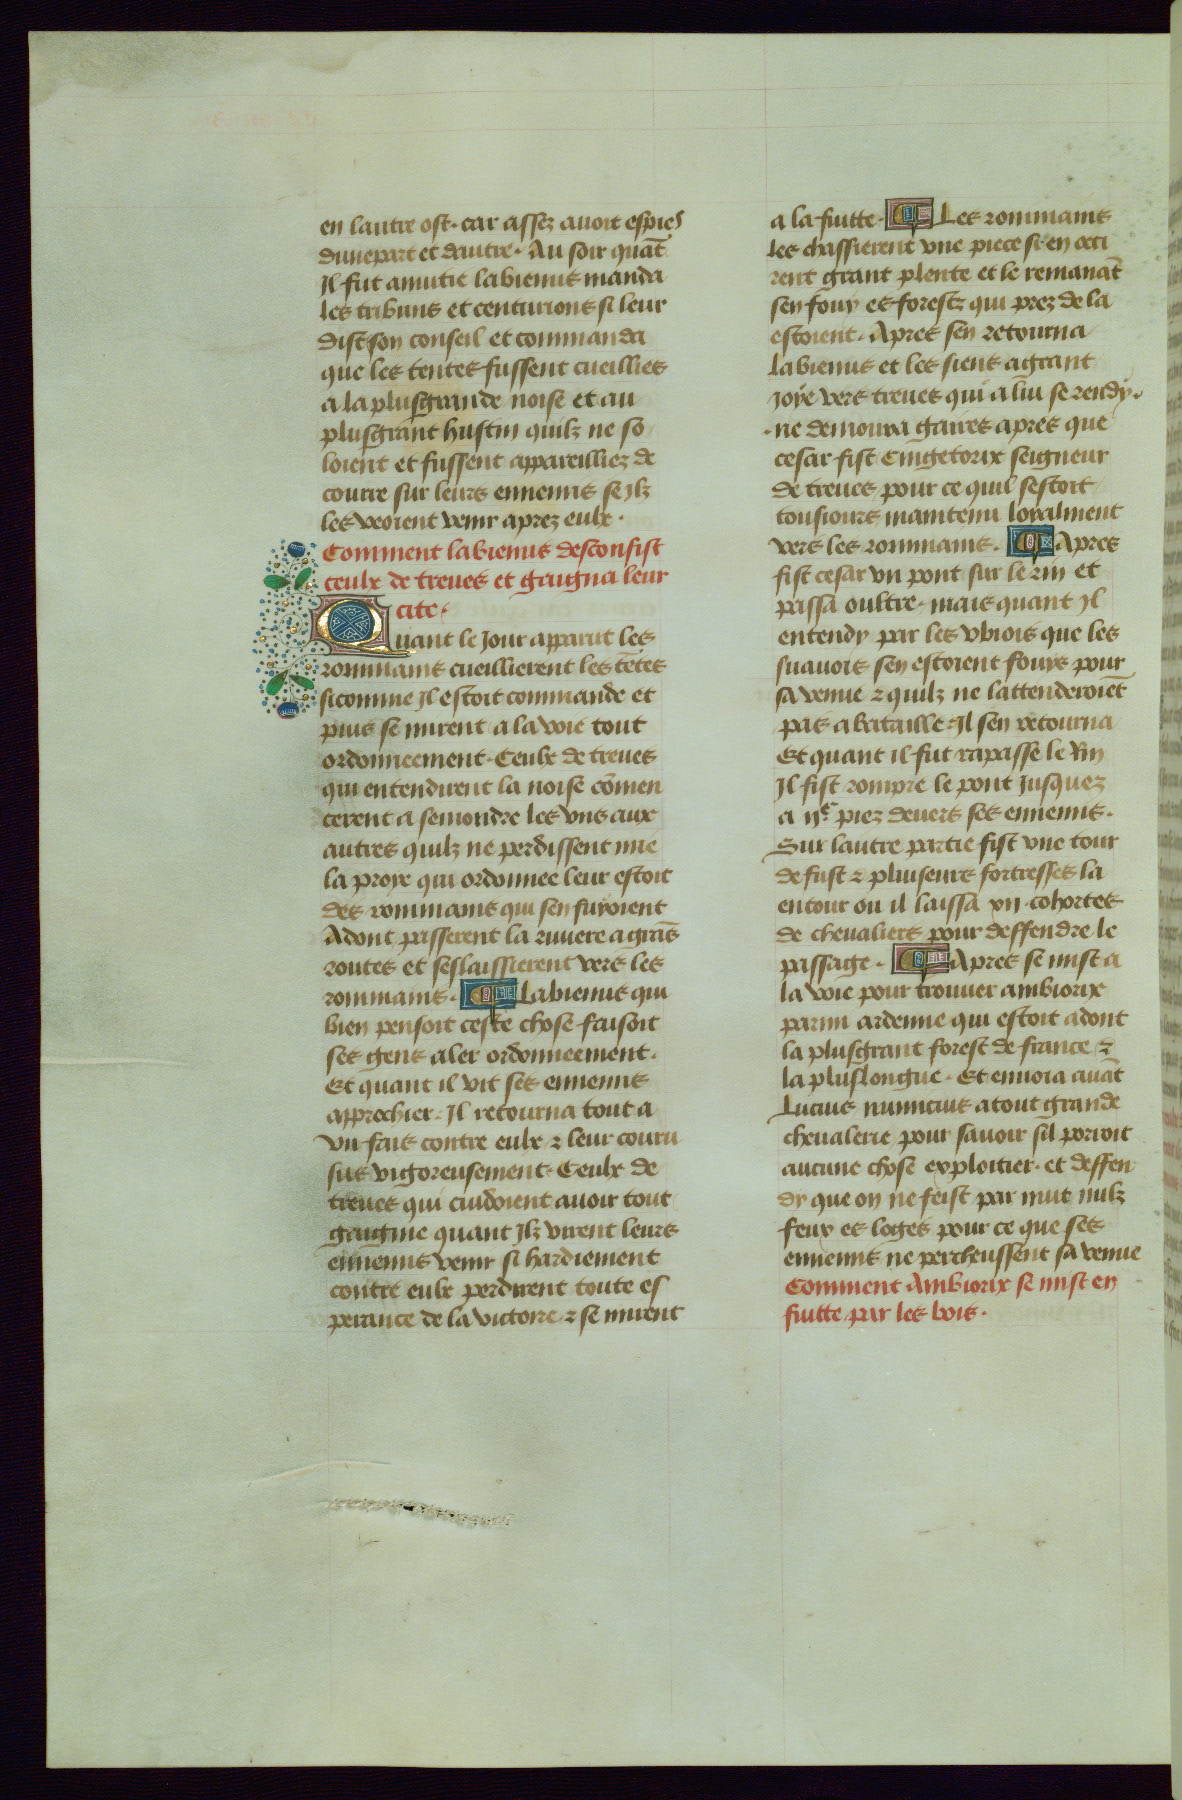 en lautre ost. car assez auoit espies
dunepart et dautre. Au soir quāt
Il fut anutie labienus manda
les tribuns et centurions si leur
dist son conseil et commanda
que les tentes fussent cueillies
a la plusgrande noise et au
plusgrant hustin quilz ne so
loient et fussent appareilliez de
courre sur leurs ennemis se jlz
les veoient venir aprez eulx.
Comment labienus desconfist
ceulx de treues et gaigna leur
cite.
Quant le Jour apparut les
rommains cueillierent les tētes
sicomme jl estoit commande et
puis se mirent a la voie tout
ordonneement. Ceulx de treues
qui entendirent la noise cōmen
cerent a semondre les vns aux
autres quilz ne perdissent mie
la proye qui ordonnee leur estoit
des rommains qui sen fuyoient
Adont passerent la riuiere a grās
routes et seslaissierent vers les
rommains. Labienus qui
bien pensoit ceste chose faisoit
ses gens aler ordonneement.
Et quant il vit ses ennemis
approchier. Il retourna tout a
vn fais contre eulx ⁊ leur couru
sus vigoreusement. Ceulx de
treues qui cuidoient auoir tout
gaignie quant Jlz virent leurs
ennemis venir si hardiement
contre eulx perdirent toute es
perance de la victoire ⁊ se mirent
a la fuitte. Les rommains
les chassierent vne piece si en occi
rent grant plente et le remanāt
sen fouy es forestz qui prez de la
estoient. Apres sen retourna
labienus et les siens a grant
joye vers treues qui a lui se rendy.
ne demoura gaires apres que
cesar fist Cingetorix seigneur
de treues pour ce quil sestoit
tousiours maintenu loyalment
vers les rommains. Apres
fist cesar vn pont sur le rin et
passa oultre. mais quant Il
entendy par les vbiois que les
suauois sen estoient fouys pour
sa venue ⁊ quilz ne lattenderoiēt
pas a bataille. Il sen retourna
Et quant il fut rapasse le Rin
Il fist rompre le pont Jusquez
a ijc piez deuers ses ennemis.
Sur lautre partie fist vne tour
de fust ⁊ pluiseurs fortresses la
entour ou il laissa xij cohortes
de cheualiers pour deffendre le
passage. Apres se mist a
la voie pour trouuer ambiorix
parmi ardenne qui estoit adont
la plusgrant forest de france ⁊
la pluslongue. Et enuoia auāt
Lucius minucius a tout grande
cheualerie pour sauoir sil porroit
aucune chose exploitier. et deffen
dy que on ne feist par nuit nulz
feux es loges pour ce que ses
ennemis ne percheussent sa venue
Comment Ambiorix se mist en
fuitte par les bois.